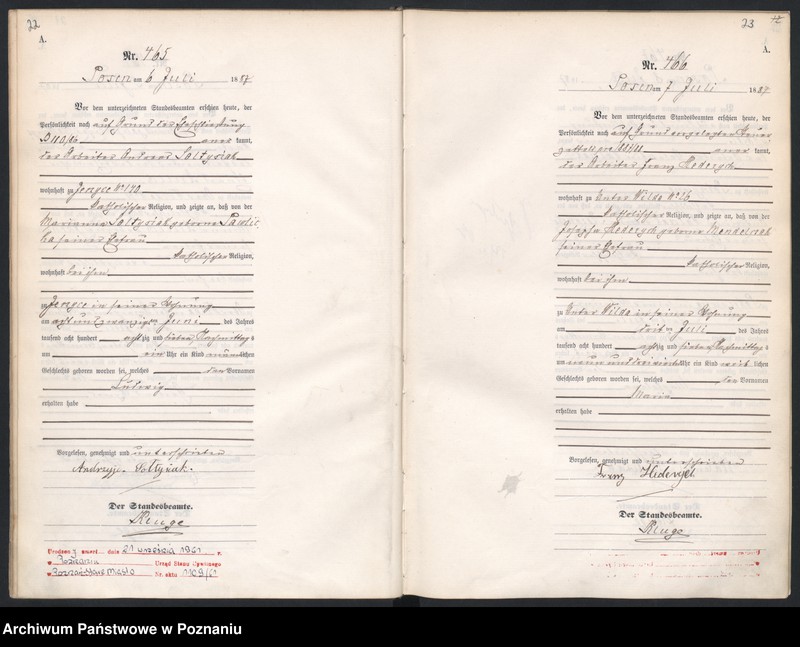 22
A.
Nr. 465
Posen am 6 Juli 1887
Vor dem unterzeichneten Standesbeamten erschien heute, der
Persönlichkeit nach auf Grund der
kannt,
der Arbeiter Andreas Soltysiak
wohnhaft zu Jerzyce
katholischer Religion, und zeigte an, daß von der
Marianna Soltysiak geborne
seiner Ehefrau
katholischer Religion,
wohnhaft bei ihm
zu Jerzyce in seiner Wohnung
am acht und zwanzigsten Juni des Jahres
tausend acht hundert achtzig und sieben Nachmittags
um ein Uhr ein Kind männlichen
Geschlechts geboren worden sei, welches den Vornamen
Ludwig
erhalten habe
Vorgelesen, genehmigt und unterschrieben
Andrzyj Soltysiak.
Der Standesbeamte.
Kluge
Urodzony zmarł dnia 21 września 1961 r.
w Poznaniu Urząd Stanu Cywilnego
w Poznań Stare Miasto Nr. aktu 1109/61
23
A.
Nr. 466
Posen am 7 Juli 1887
Vor dem unterzeichneten Standesbeamten erschien heute, der
Persönlichkeit nach auf Grund vorgelegter Steuer
zettel pro kannt,
der Arbeiter Franz
wohnhaft zu Unter Wilda
katholischer Religion, und zeigte an, daß von der
Josepha geborne
seiner Ehefrau
katholischer Religion,
wohnhaft bei ihm
zu Unter Wilda in seiner Wohnung
am Juli des Jahres
tausend acht hundert achtzig und sieben Nachmittags
um neun und Uhr ein Kind weiblichen
Geschlechts geboren worden sei, welches den Vornamen
Maria
erhalten habe
Vorgelesen, genehmigt und unterschrieben
Franz
Der Standesbeamte.
Kluge
Archiwum Państwowe w Poznaniu